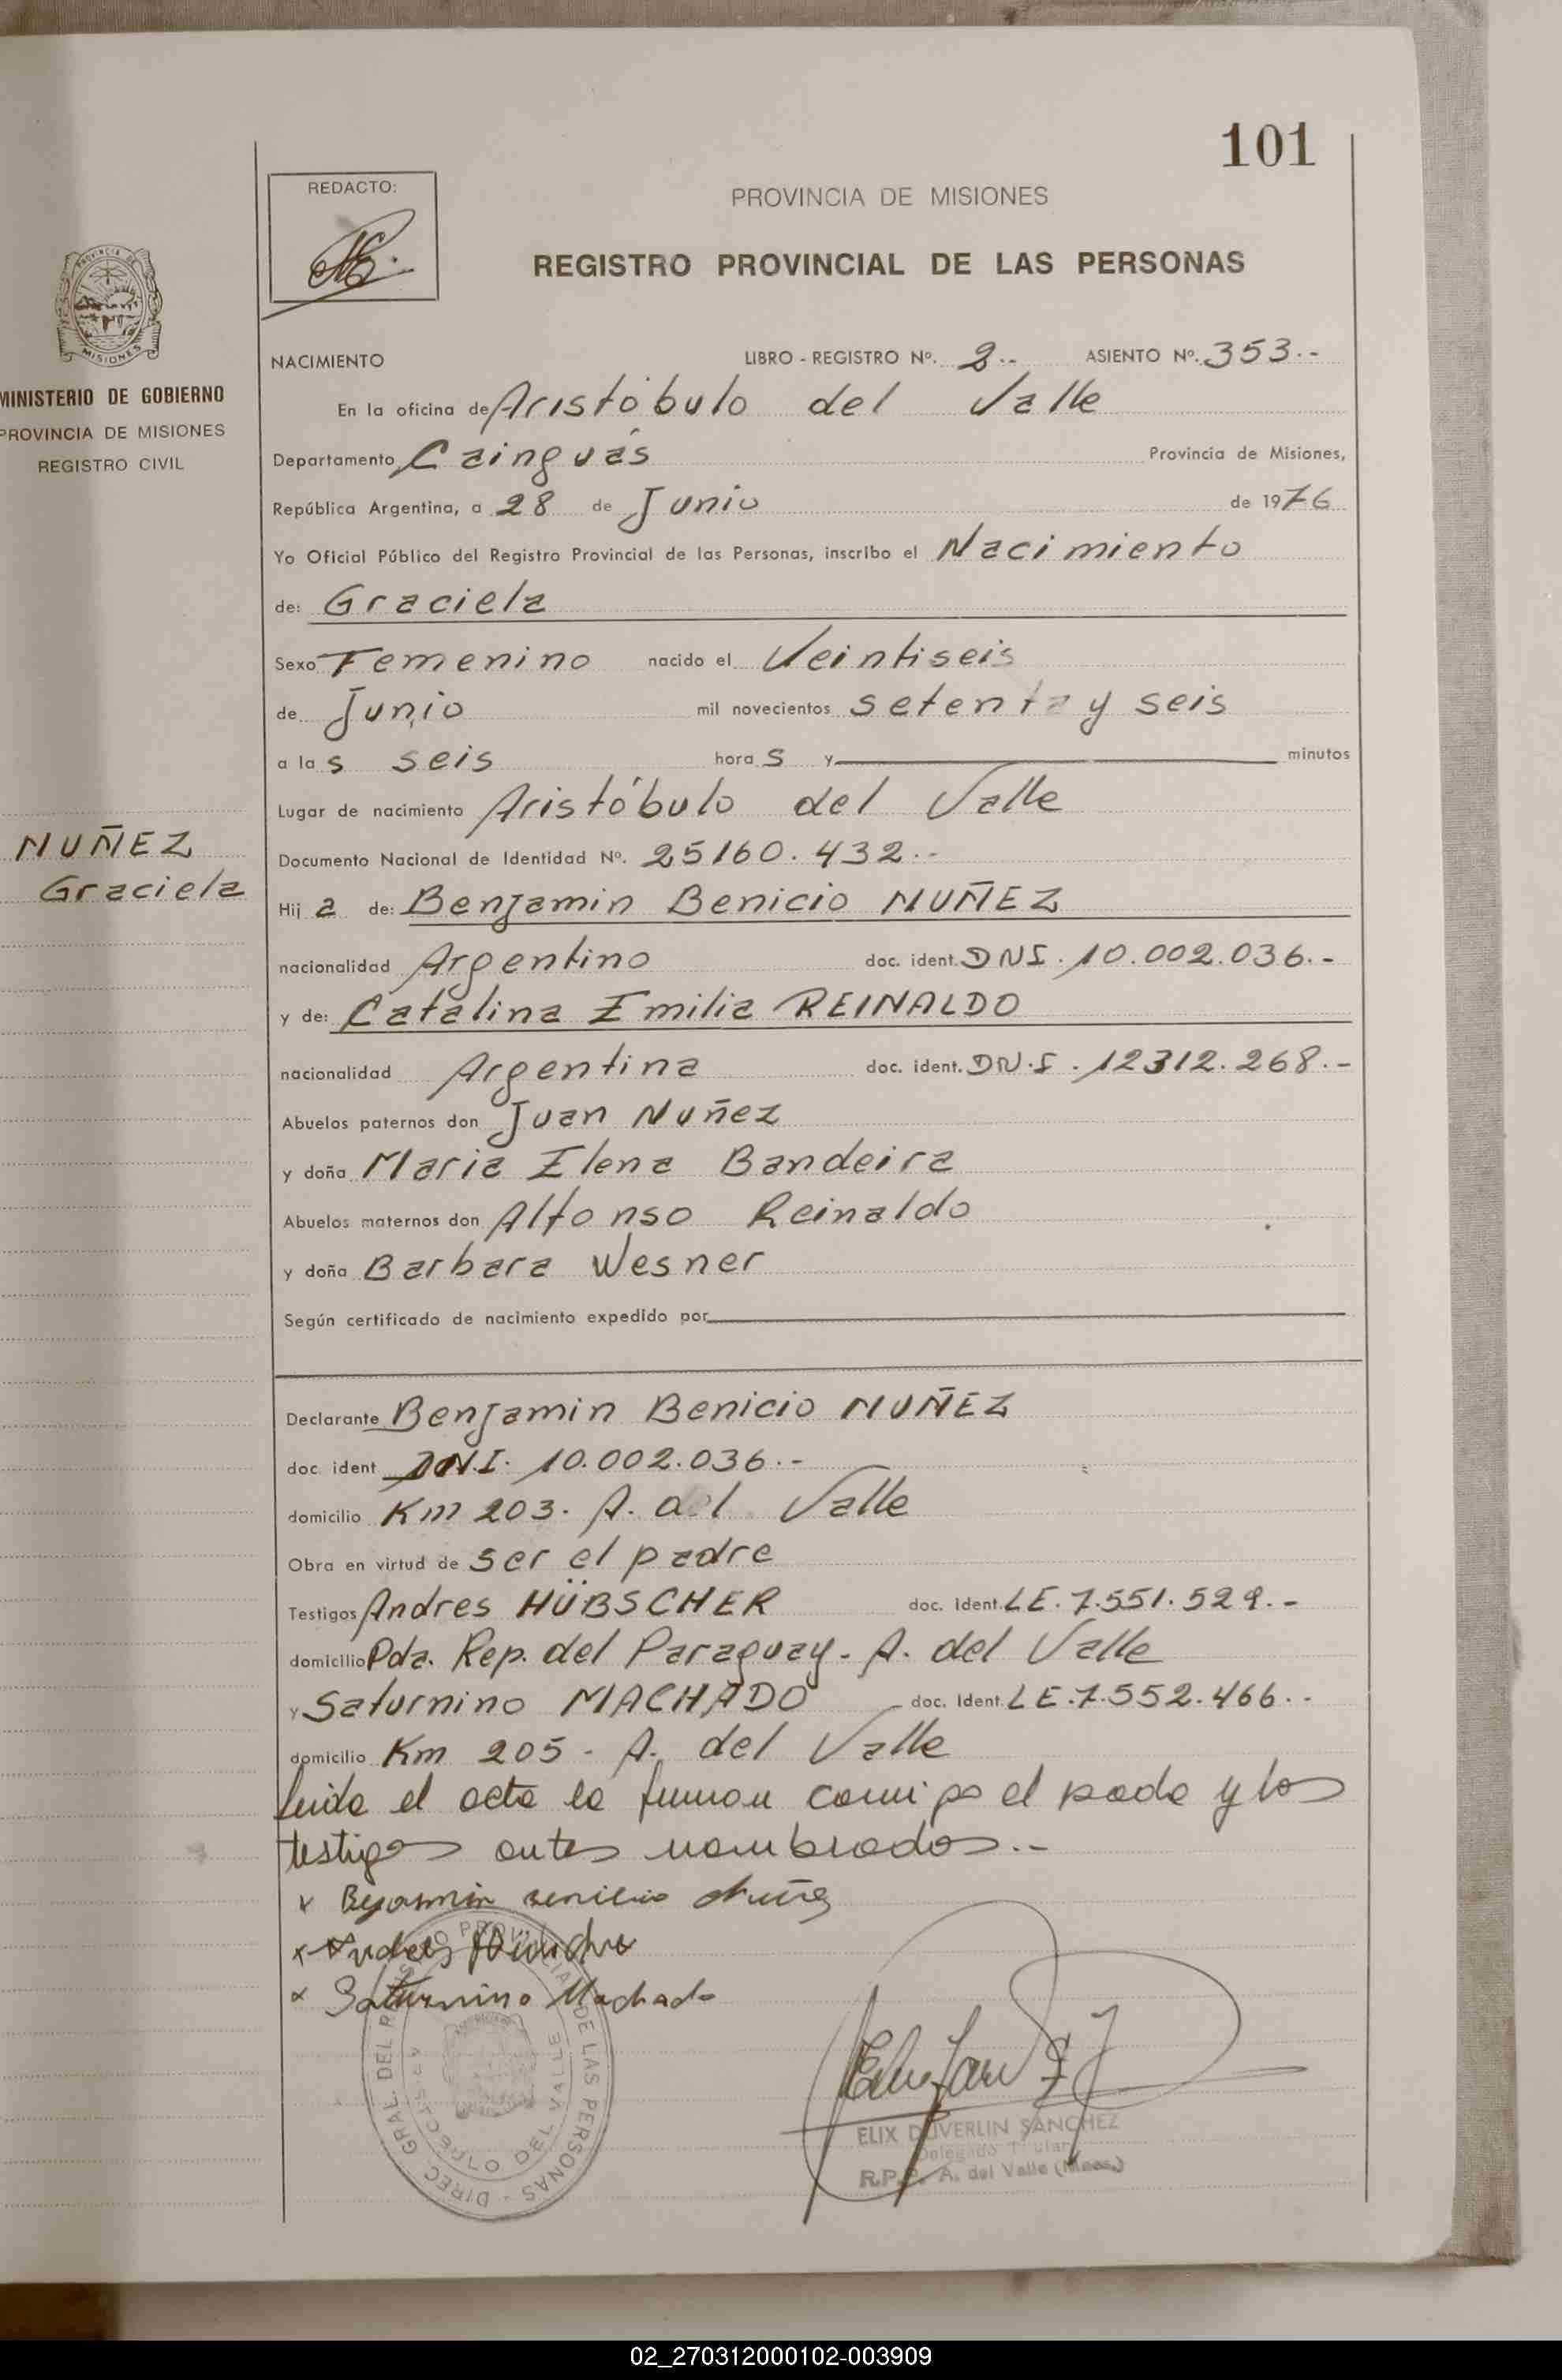 101
REDACTO:
PROVINCIA DE MISIONES
REGISTRO PROVINCIAL DE LAS PERSONAS
MISIONES
MINISTERIO DE GOBIERNO
PROVINCIA DE MISIONES
REGISTRO CIVIL
NUÑEZ
Graciela
NACIMIENTO LIBRO - REGISTRO Nº. 2.- ASIENTO Nº. 353.-
En la oficina de Aristóbulo del Valle
Departamento Cainguás Provincia de Misiones,
República Argentina, a 28 de Junio de 1976
Yo Oficial Público del Registro Provincial de las Personas, inscribo el Nacimiento
de: Graciela
Sexo Femenino nacido el Veintiseis
de Junio mil novecientos setenta y seis
a las seis horas y minutos
Lugar de nacimiento Aristóbulo del Valle
Documento Nacional de Identidad Nº. 25160.432.-
Hija de: Benjamin Benicio NUÑEZ
nacionalidad Argentino doc. ident. DNI. 10.002.036.-
y de: Catalina Emilia REINALDO
nacionalidad Argentina doc. ident. DN.I. 12312.268.-
Abuelos paternos don Juan Nuñez
y doña Maria Elena Bandeira
Abuelos maternos don Alfonso Reinaldo
y doña Barbara Wesner
Según certificado de nacimiento expedido por
Declarante Benjamin Benicio NUÑEZ
doc. ident DN.I. 10.002.036.-
domicilio Km 203. A. del Valle
Obra en virtud de ser el padre
Testigos Andres HÜBSCHER doc. Ident. LE. 7.551.529.-
domicilio Pda. Rep. del Paraguay - A. del Valle
y Saturnino MACHADO doc. Ident. LE. 7.552.466.-
domicilio Km 205 - A. del Valle
leida el acta la firman comigo el padre y los
testigos antes nombrados.-
x Benjamin Benicio Nuñez
x Andres
x Saturnino Machado
DIREC. GRAL DEL REGISTRO PROVINCIAL DE LAS PERSONAS
DEL VALLE
ELIX DUVERLIN SANCHEZ
Delegado Titular
R.P.P. A. del Valle (Mnes.)
02_270312000102-003909